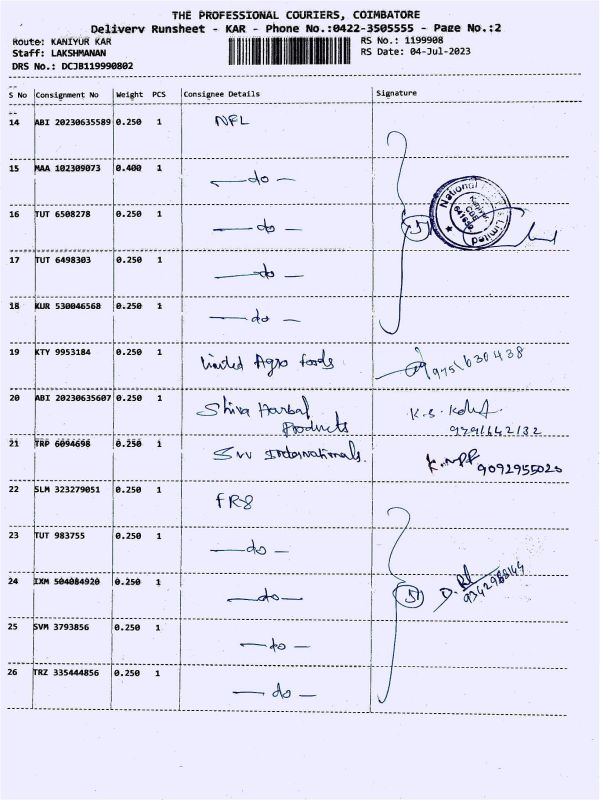 THE PROFESSIONAL COURIERS, COIMBATORE
Delivery Runsheet - KAR - Phone No.:0422-3505555 - Page No.:2
Route: KANIYUR KAR RS No.: 1199908
Staff: LAKSHMANAN RS Date: 04-Jul-2023
DRS No.: DCJB119990802
S No Consignment No Weight PCS Consignee Details Signature
14 ABI 20230635589 0.250 1 NFL
15 MAA 102309073 0.400 1 —do—
National Limited
641659
16 TUT 6508278 0.250 1 —do— 5
17 TUT 6498303 0.250 1 —do—
18 KUR 530046568 0.250 1 —do—
19 KTY 9953184 0.250 1 United Agro foods 9751630438
20 ABI 20230635607 0.250 1 Shiva Harbal K.S.
Products
21 TRP 6094698 0.250 1 Internationals. 9092955020
22 SLM 323279051 0.250 1 FR8
23 TUT 983755 0.250 1 —do—
24 IXM 504084920 0.250 1 —do— 5 D.
25 SVM 3793856 0.250 1 —do—
26 TRZ 335444856 0.250 1 —do—